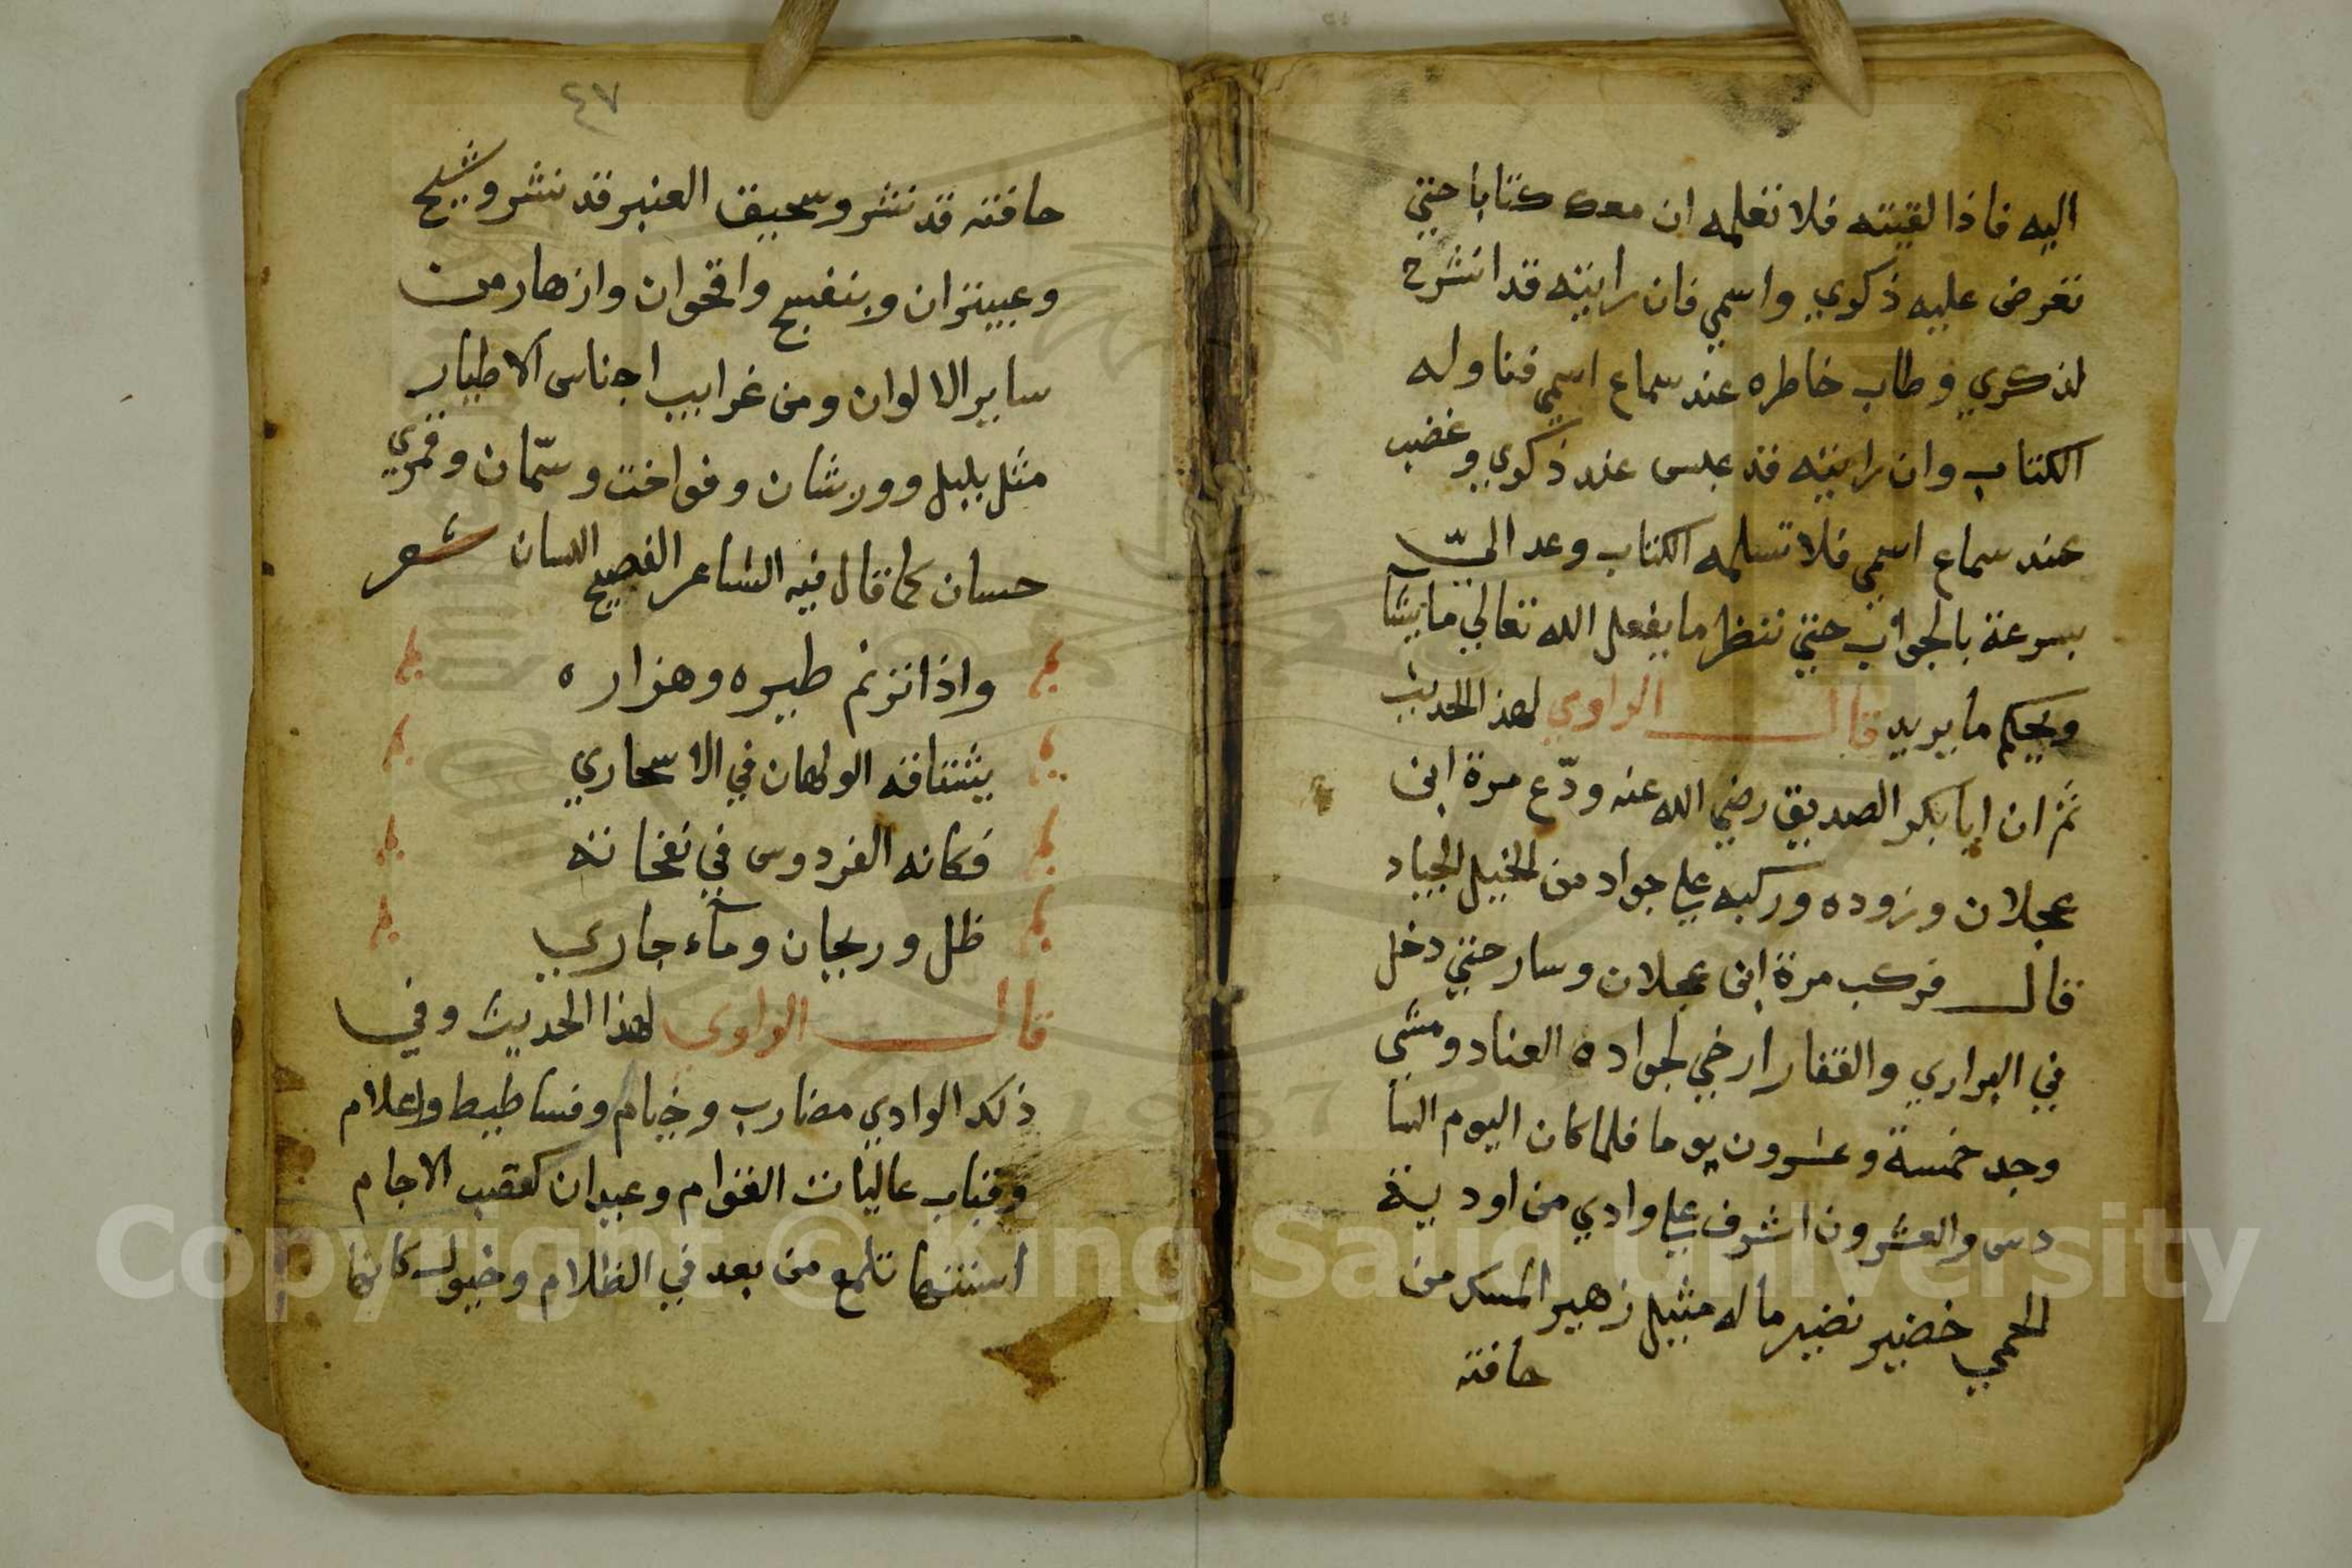 اليه فاذا لقيته فلا تعلمه ان معك كتابا حتي
تعرض عليه ذكري واسمي فان رايته قد انشرح
لذكري وطاب خاطره عند سماع اسمي فناوله
الكتاب وان رايته قد عبس عند ذكري وغضب
عند سماع اسمي فلا تسلمه الكتاب وعد اليّ
بسرعة بالجواب حتي ننظر ما يفعل الله تعالي ما يشآ
ويحكم ما يريد قال الراوي لهذا الحديث
ثم ان ابا بكر الصديق رضي الله عنه ودّع مرة ابن
عجلان وزوده وركبه علي جواد من الخيل الجياد
قال فركب مرة ابن عجلان وسار حتي دخل
في البراري والقفار ارخي لجواده العناد ومشي
وجد خمسة وعشرون يوما فلما كان اليوم السا
دس والعشرون اشرف علي وادي من اودية
الحمي خضير نضير ماله مثيل زهير المسك من
حافته
٤٧
حافته قد نشر وسحيق العنبر قد نشر وشيح
وعبيتران وبنفسج واقحوان وازهار من
ساير الالوان ومن غرايب اجناس الاطيار
مثل بلبل وورشان وفواخت وسمّان وقمري
حسان كما قال فيه الشاعر الفصيح اللسان شعر
واذا ترنم طيره وهزاره
يشتاقه الولهان في الاسحاري
فكانه الفردوس في نفحاته
ظل وريحان ومآء جاري
قال الراوي لهذا الحديث وفي
ذلك الوادي مضارب وخيام وفساطيط واعلام
وقباب عاليات القوام وعيدان كقصب الاجام
اسنتها تلمع من بعد في الظلام وخيول كانها
Copyright © King Saud University
1957